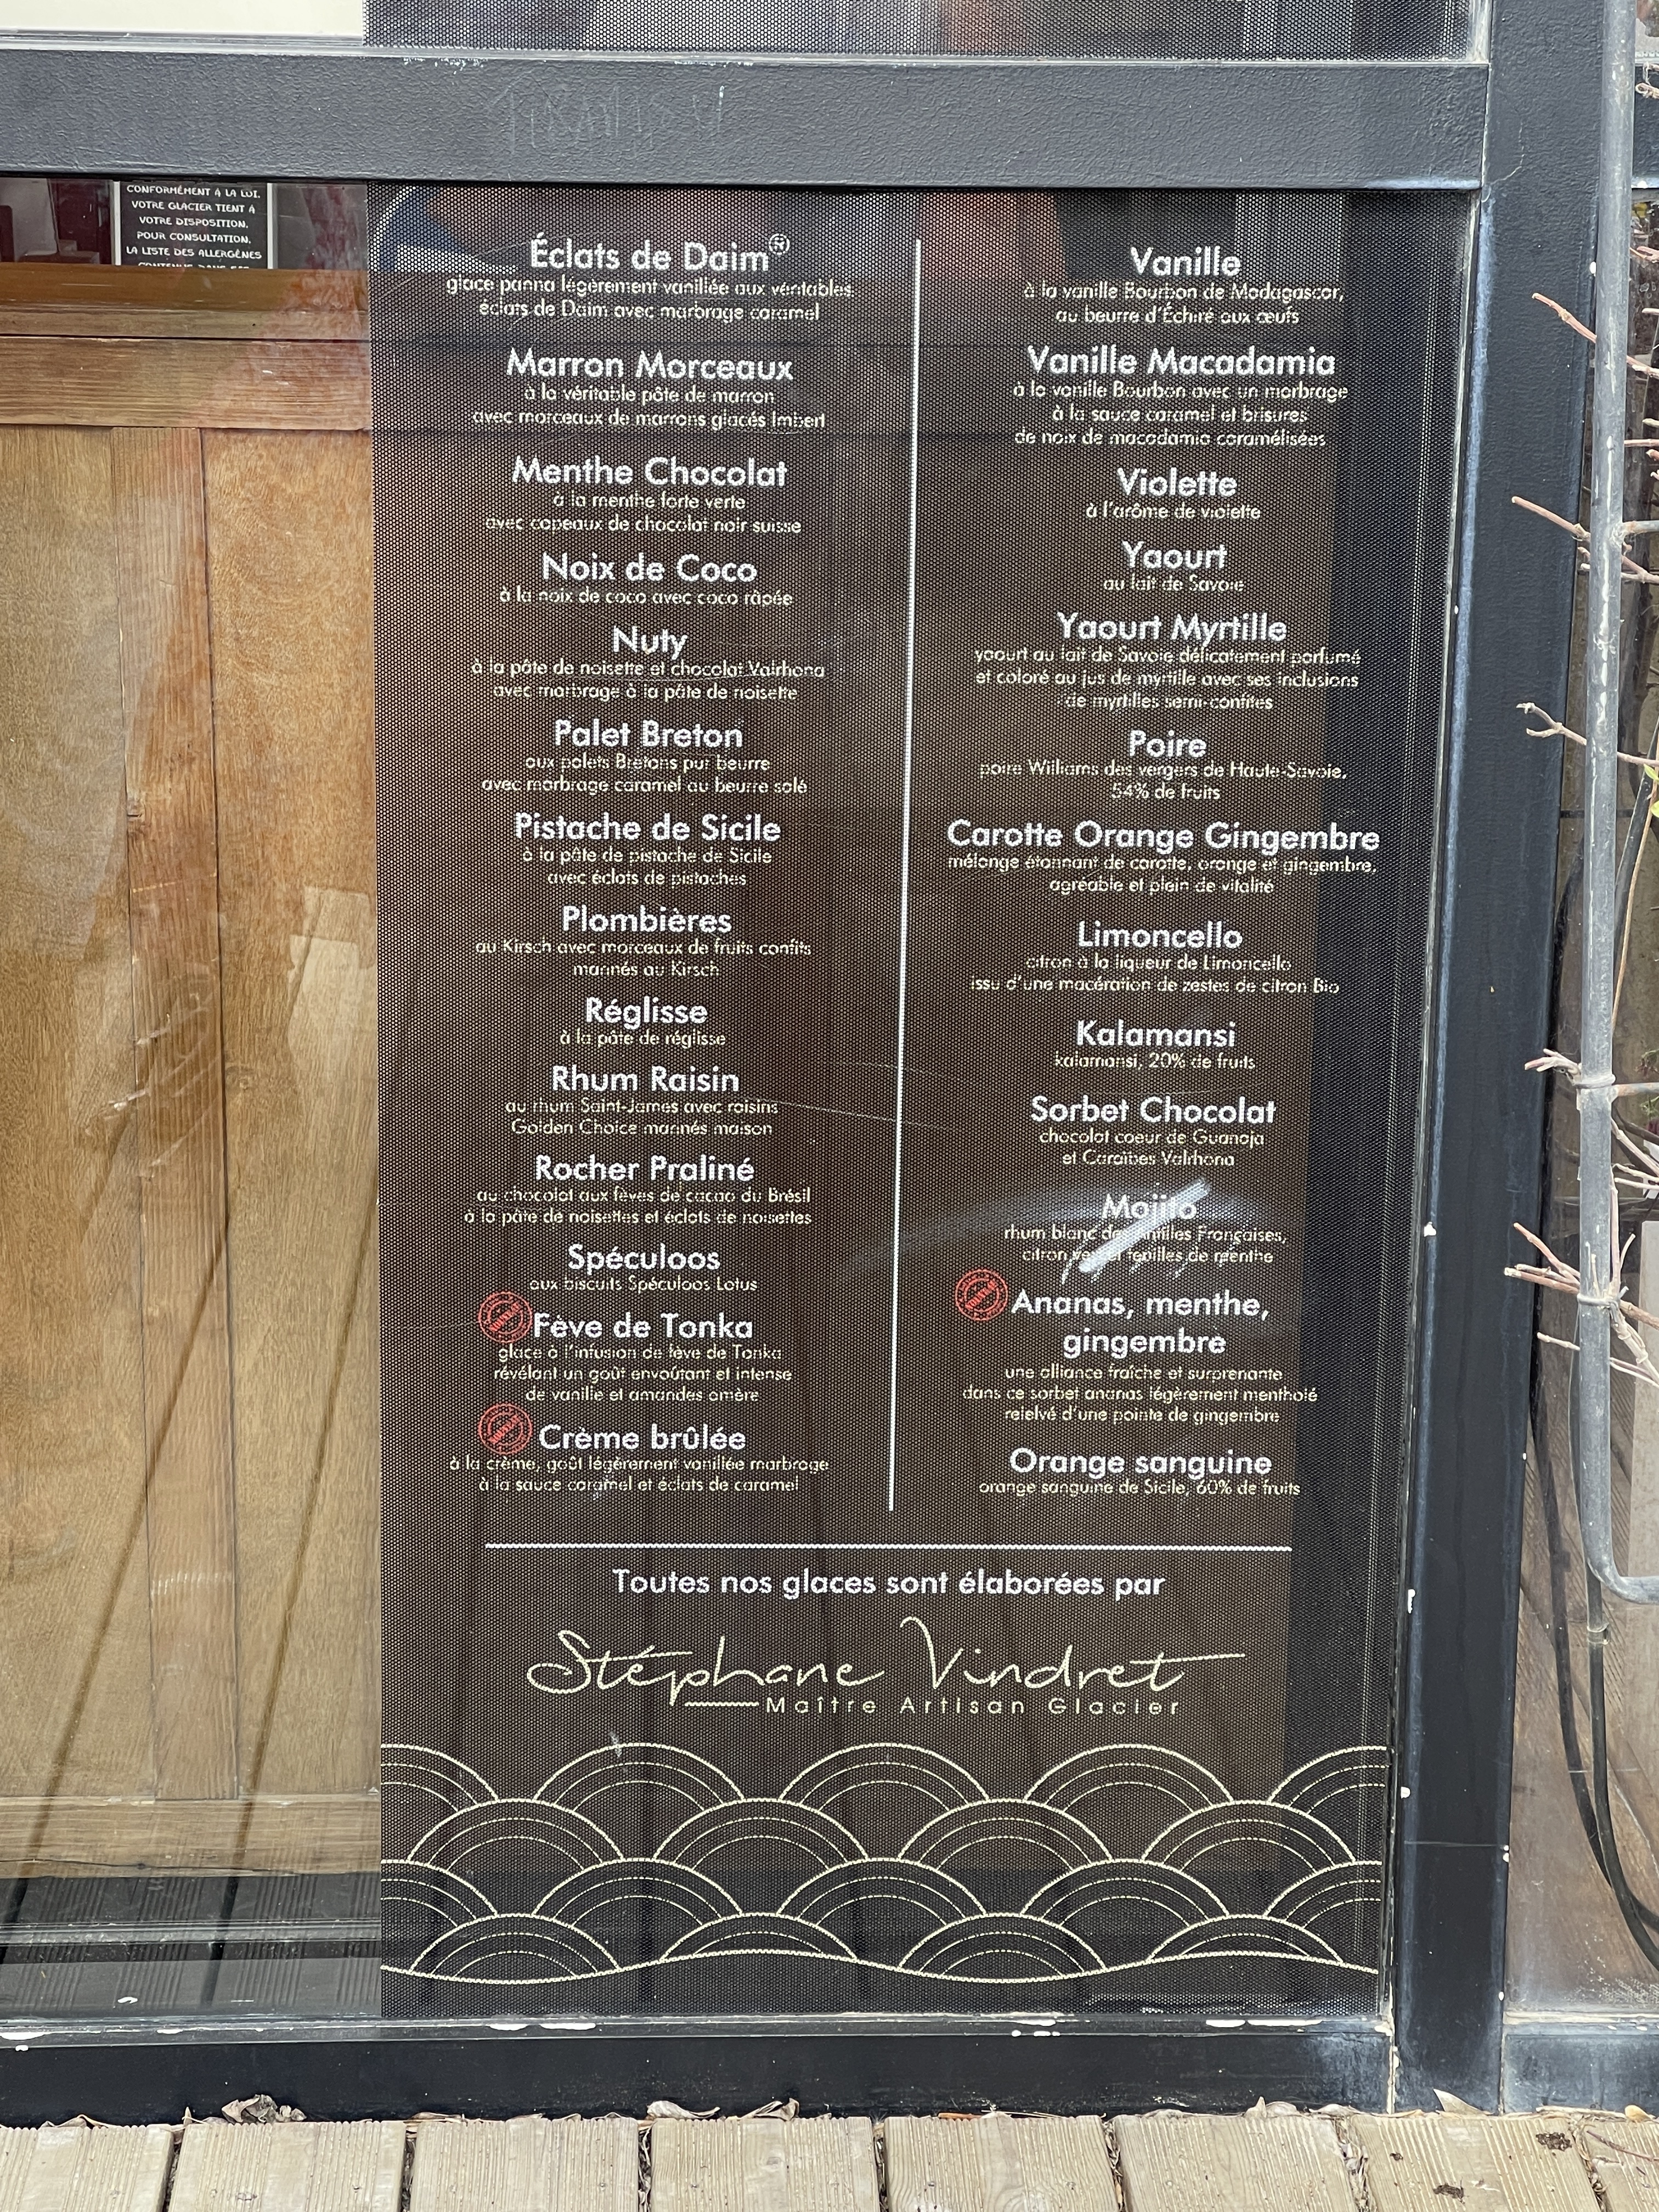 CONFORMÉMENT À LA LOI,
VOTRE GLACIER TIENT À
VOTRE DISPOSITION,
POUR CONSULTATION,
LA LISTE DES ALLERGÈNES
Éclats de Daim®
glace panna légèrement vanillée aux véritables
éclats de Daim avec marbrage caramel
Marron Morceaux
à la véritable pâte de marron
avec morceaux de marrons glacés Imbert
Menthe Chocolat
à la menthe forte verte
avec copeaux de chocolat noir suisse
Noix de Coco
à la noix de coco avec coco râpée
Nuty
à la pâte de noisette et chocolat Valrhona
avec marbrage à la pâte de noisette
Palet Breton
aux palets Bretons pur beurre
avec marbrage caramel au beurre salé
Pistache de Sicile
à la pâte de pistache de Sicile
avec éclats de pistaches
Plombières
au Kirsch avec morceaux de fruits confits
marinés au Kirsch
Réglisse
à la pâte de réglisse
Rhum Raisin
au rhum Saint-James avec raisins
Golden Choice marinés maison
Rocher Praliné
au chocolat aux fèves de cacao du Brésil
à la pâte de noisettes et éclats de noisettes
Spéculoos
aux biscuits Spéculoos Lotus
Fève de Tonka
glace à l'infusion de fève de Tonka
révélant un goût envoûtant et intense
de vanille et amandes amère
Crème brûlée
à la crème, goût légèrement vanillée marbrage
à la sauce caramel et éclats de caramel
Vanille
à la vanille Bourbon de Madagascar,
au beurre d'Échiré aux œufs
Vanille Macadamia
à la vanille Bourbon avec un marbrage
à la sauce caramel et brisures
de noix de macadamia caramélisées
Violette
à l'arôme de violette
Yaourt
au lait de Savoie
Yaourt Myrtille
yaourt au lait de Savoie délicatement parfumé
et coloré au jus de myrtille avec ses inclusions
de myrtilles semi-confites
Poire
poire Williams des vergers de Haute-Savoie,
54% de fruits
Carotte Orange Gingembre
mélange étonnant de carotte, orange et gingembre,
agréable et plein de vitalité
Limoncello
citron à la liqueur de Limoncello
issu d'une macération de zestes de citron Bio
Kalamansi
kalamansi, 20% de fruits
Sorbet Chocolat
chocolat coeur de Guanaja
et Caraïbes Valrhona
Mojito
rhum blanc des Antilles Françaises,
citron vert et feuilles de menthe
Ananas, menthe,
gingembre
une alliance fraîche et surprenante
dans ce sorbet ananas légèrement mentholé
relelvé d'une pointe de gingembre
Orange sanguine
orange sanguine de Sicile, 60% de fruits
Toutes nos glaces sont élaborées par
Stéphane Vindret
Maître Artisan Glacier